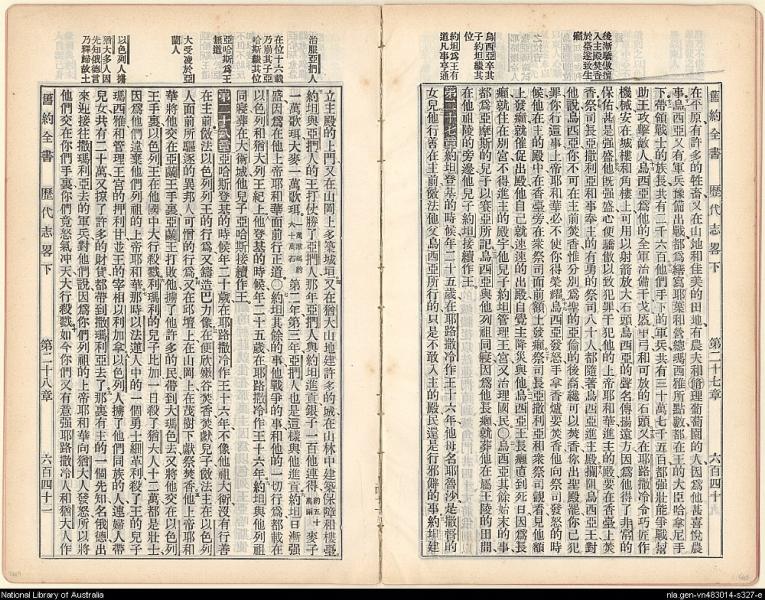 後漸驕傲擅
入主殿焚香
於是遂致生
癩
烏西亞卒其
子約坦繼其
位
約坦為王有
道凡事亨通
舊約全書
歷代志畧下
第二十七章
在平原有許多的牲畜又在山地和佳美的田地有農夫和修理葡萄園的人因為他甚喜悅農
事烏西亞又有軍兵豫備出戰都為繕寫耶葉和營總瑪西雅所點數都在王的大臣哈拿尼手
下帶領戰士的族長共有二千六百他們手下的軍兵共有三十萬七千五百都強壯能爭戰幫
助王攻擊敵人烏西亞為他的全軍治備干戈盔甲弓和可放的石頭又在耶路撒冷令巧匠作
機械安在城樓和角樓上可用以射箭放大石頭烏西亞的聲名傳揚遠方因為他得了非常的
保佑甚是強盛他既強盛心便驕傲以致犯罪干犯他的上帝耶和華進主的殿要在香臺上焚
香祭司長亞撒利亞和事奉主的有勇的祭司八十人都隨著烏西亞進主殿攔阻烏西亞王對
他說烏西亞你不可在主前焚香惟分別為聖的亞倫的後裔纔可以焚香你出聖殿罷你已犯
罪你行這事上帝耶和華必不使你得榮耀烏西亞發怒手拿香爐要焚香他向祭司發怒的時
候他在主的殿中在香臺旁在衆祭司面前額上發癩祭司長亞撒利亞和衆祭司觀看見他額
上發癩就催促出殿他自己就速速的出殿自覺主降災與他烏西亞王長癩直到死日因為長
癩就住在別宮不得進主的殿宇他兒子約坦管理王宮又治理國民○烏西亞其餘始末的事
都為亞摩斯的兒子以賽亞所記烏西亞與他列祖同寢因為他長癩就葬他在屬王陵的田間
在他祖陵的旁邊他兒子約坦接續作王
第二十七章約坦登基的時候年二十五歲在耶路撒冷作王十六年他母名耶魯沙是撒督的
女兒他行善在主前儆法他父烏西亞所行的只是不敢入主的殿民還是行邪僻的事約坦建
治服亞捫人
在位十六載
乃崩其子亞
哈斯繼其位
亞哈斯為王
無道
大受凌於亞
蘭人
以色列人擄
猶大多人因
先知俄德言
乃釋歸故土
立主殿的上門又在山岡上多築城垣又在猶大山地建許多的城在山林中建築保障和樓臺
約坦與亞捫人的王打仗勝了亞捫人那年亞捫人與約坦進貢銀子一百他連得麥子
一萬歌珥大麥一萬歌珥第二年第三年亞捫人也是這樣與他進貢約坦日漸強
盛因為在他上帝耶和華面前行正道○約坦其餘的事他戰爭的事和他的一切行為都載在
以色列和猶大列王紀上他登基的時候年二十五歲在耶路撒冷作王十六年約坦與他列祖
同寢葬在大衛城他兒子亞哈斯接續作王
第二十八章亞哈斯登基的時候年二十歲在耶路撒冷作王十六年不像他祖大衛沒有行善
在主前儆法以色列列王的行為又鑄造巴力像在便欣嫩谷焚香焚獻兒子儆法主在以色列
人面前所驅逐的異邦人可憎的行為又在邱壇上在山岡上在茂樹下獻祭焚香他上帝耶和
華將他交在亞蘭王手裏亞蘭王打敗他擄了他許多的民帶到大瑪色去又將他交在以色列
王手裏以色列王在他國中大行殺戮利瑪利的兒子比加一日殺了猶大人十二萬都是壯士
因為他們遺棄他們列祖的上帝耶和華那時以法蓮人中的一個勇士細革利殺了王的兒子
瑪西雅和管理王宮的押斯利甘並王的宰相以利加拿以色列人擄了他們同族的人連婦人帶
兒女共有二十萬又掠了許多的財貨都帶到撒瑪利亞去了那裏有主的一個先知名俄德出
來迎接往撒瑪利亞去的軍兵對他們說因為你們列祖的上帝耶和華向猶大人發怒所以將
他們交在你們手裏你們竟怒氣冲天大行殺戮如今你們又有意强耶路撒冷人和猶大人作
舊約全書
歷代志畧下
第二十八章
六百四十一
National Library of Australia
nla.gen-vn483014-s327-e